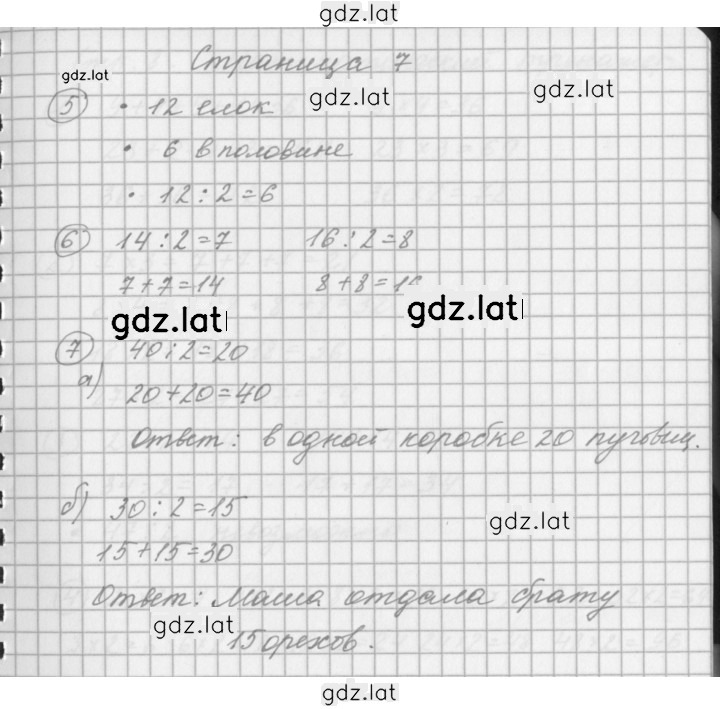 gdz.lat
Страница 7
gdz.lat
gdz.lat
gdz.lat
5 • 12 елок
• 6 в половине
• 12 : 2 = 6
6 14 : 2 = 7 16 : 2 = 8
7 + 7 = 14 8 + 8 = 16
gdz.lat
gdz.lat
7 40 : 2 = 20
а)
20 + 20 = 40
Ответ: в одной коробке 20 пуговиц.
б) 30 : 2 = 15
gdz.lat
15 + 15 = 30
Ответ: Маша отдала брату
gdz.lat
15 орехов.
gdz.lat